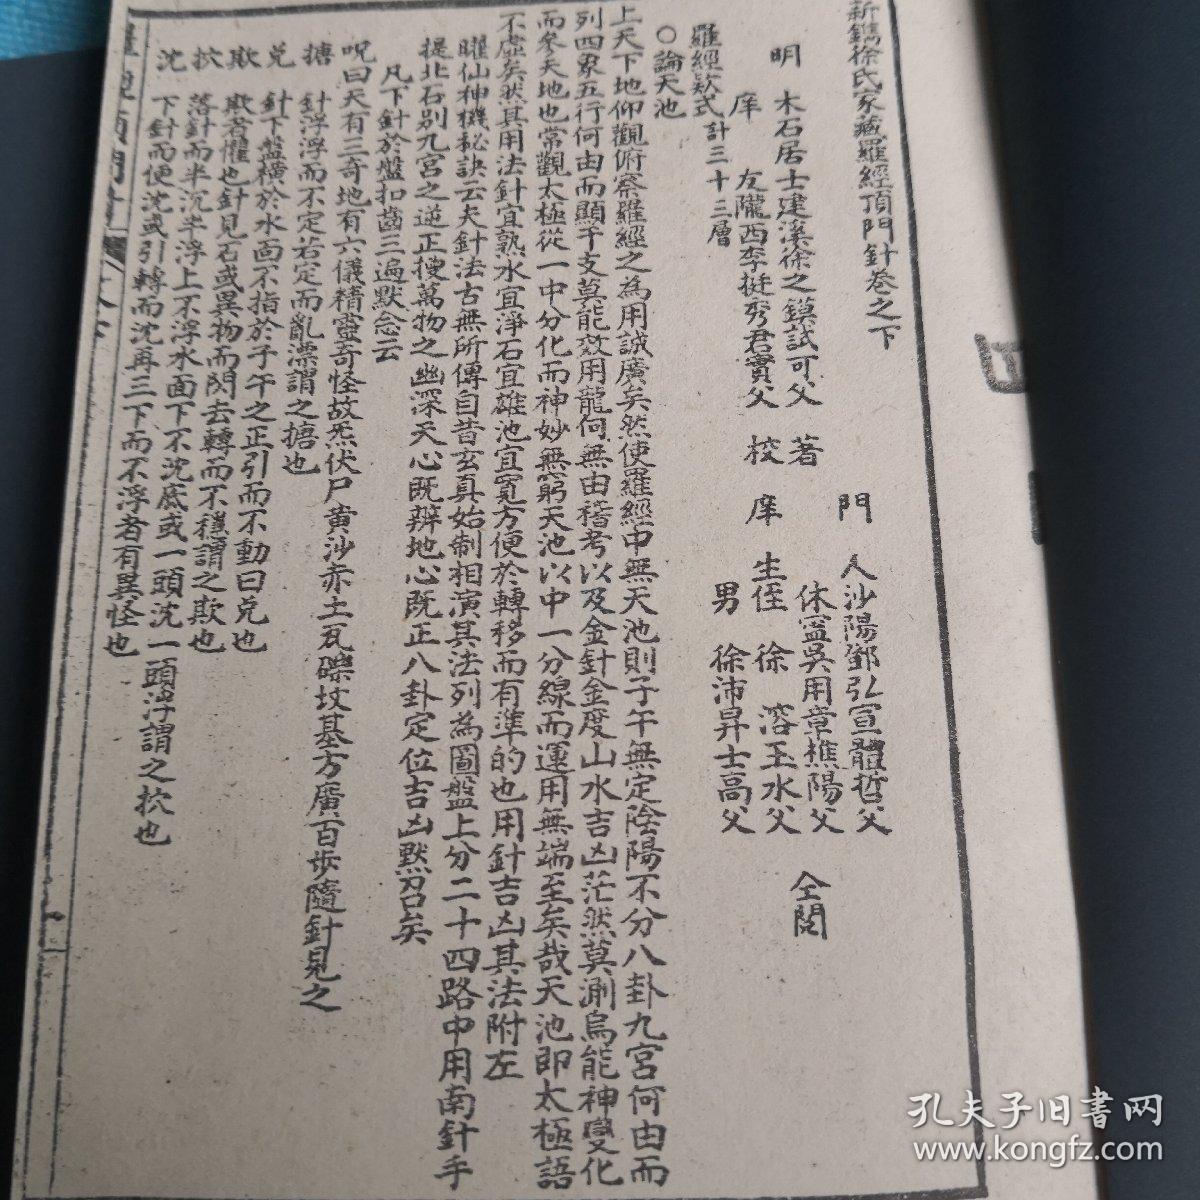 新鐫徐氏家藏羅經頂門針卷之下
明 木石居士建溪徐之鏌試可父 著
庠 友隴西李挺秀君實父 校
門 人沙陽鄧弘宣體哲父
休寧吳用章樵陽父
庠 生侄 徐 溶玉水父
男 徐沛昇士高父
仝閱
羅經欵式 計三十三層
○論天池
上天下地仰觀俯察羅經之為用誠廣矣然使羅經中無天池則子午無定陰陽不分八卦九宮何由而
列四象五行何由而顯干支莫能效用龍何無由稽考以及金針金度山水吉凶茫然莫測烏能神變化
而參天地也常觀太極從一中分化而神妙無窮天池以中一分線而運用無端至矣哉天池即太極語
不虛矣然其用法針宜熟水宜淨石宜雄池宜寬方便於轉移而有準的也用針吉凶其法附左
臞仙神機秘訣云夫針法古無所傳自昔玄真始制相演其法列為圖盤上分二十四路中用南針手
提北石別九宮之逆正搜萬物之幽深天心既辨地心既正八卦定位吉凶默召矣
凡下針於盤扣齒三遍默念云
呪曰天有三奇地有六儀精靈奇怪故炁伏尸黄沙赤土瓦礫坟基方廣百步隨針見之
搪 針浮浮而不定若定而亂漂謂之搪也
兑 針下盤橫於水面不指於子午之正引而不動曰兑也
欺 欺者懼也針見石或異物而閃去轉而不穩謂之欺也
㧒 落針而半沉半浮上不浮水面下不沈底或一頭沈一頭浮謂之㧒也
沈 下針而便沈或引轉而沈再三下而不浮者有異怪也
孔夫子旧书网
www.kongfz.com